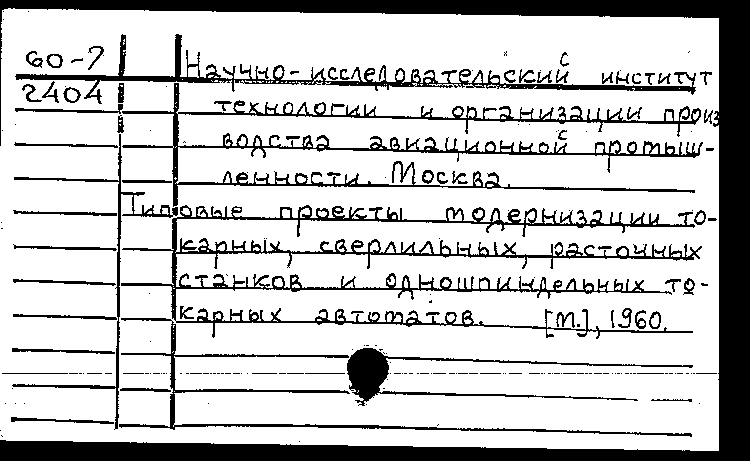 60-7
2404
Научно-исследовательский институт
технологии и организации произ
водства авиационной промыш-
ленности. Москва.
Типовые проекты модернизации то-
карных, сверлильных, расточных
станков и одношпиндельных то-
карных автоматов. [М.], 1960.